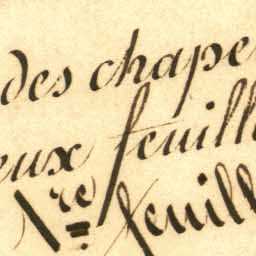 des chape
eux feuill
1re feuill